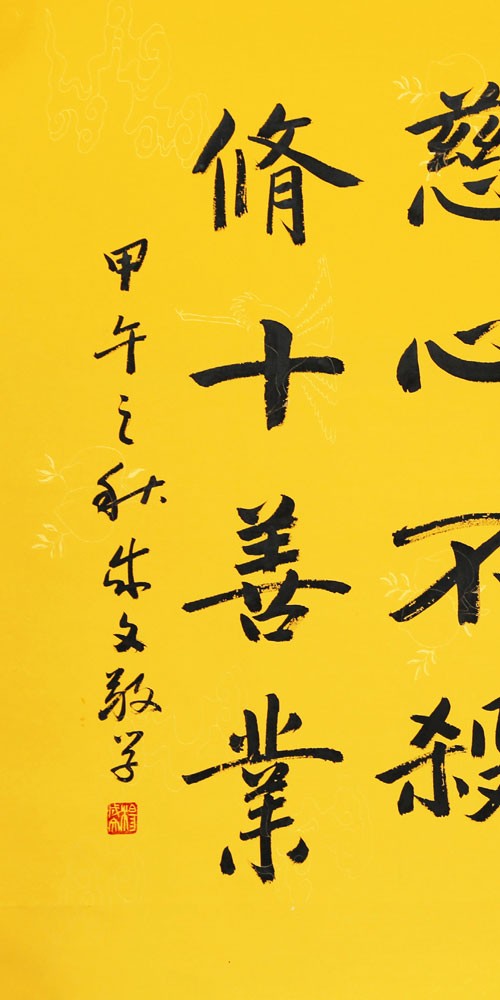 慈心不殺
脩十善業
甲午之秋成文敬学